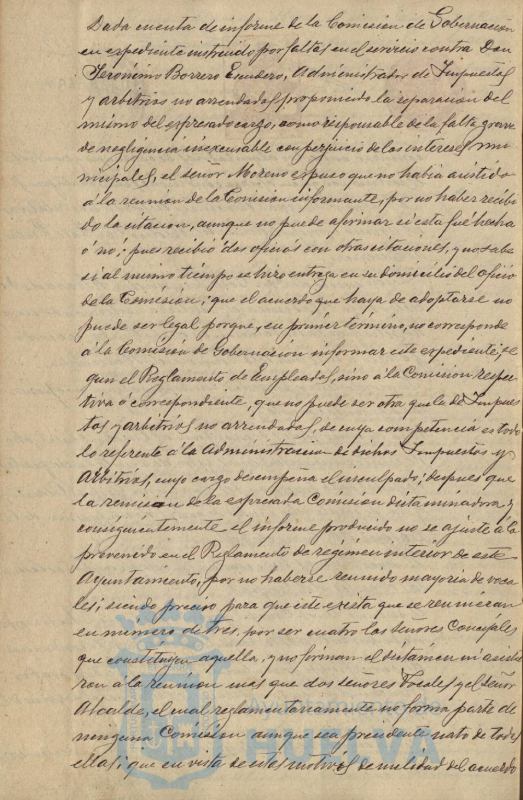 Dada cuenta de informe de la Comision de Gobernación
en expediente instruido por faltas en el servicio contra Don
Jerónimo Borrero Escudero, Administrador de Impuestos
y arbitrios no arrendados, proponiendo la separación del
mismo del espresado cargo, como responsable de la falta grave
de negligencia inexcusable con perjuicio de los intereses mu-
nicipales, el señor Moreno espuso que no habia asistido
á la reunion de la Comision informante, por no haber recibi-
do la citacion, aunque no puede afirmar si esta fué hecha
ó no; pues recibió dos oficios con otras citaciones, y no sabe
si al mismo tiempo se hizo entrega en su domicilio del oficio
de la Comisión; que el acuerdo que haya de adoptarse no
puede ser legal porque, en primer término, no corresponde
á la Comisión de Gobernacion informar este expediente, se-
gun el Reglamento de Empleados, sino á la Comision respec-
tiva ó correspondiente, que no puede ser otra que la de Impues-
tos y arbitrios no arrendados, de cuya competencia es todo
lo referente á la Administracion de dichos Impuestos y
Arbitrios, cuyo cargo desempeña el inculpado; despues que
la reunion de la espresada Comision dictaminadora, y
consiguientemente el informe producido no se ajusta á lo
prevenido en el Reglamento de régimen interior de este
Ayuntamiento, por no haberse reunido mayoria de voca-
les; siendo preciso para que este exista que se reunieran
en numero de tres, por ser cuatro los señores Concejales
que constituyen aquella, y no firman el dictámen ni asistie-
ron á la reunion mas que dos señores Vocales y el Señor
Alcalde, el cual reglamentariamente no forma parte de
ninguna Comision aunque sea presidente nato de todas
ellas; que en vista de estos motivos de nulidad del acuerdo
HUELVA